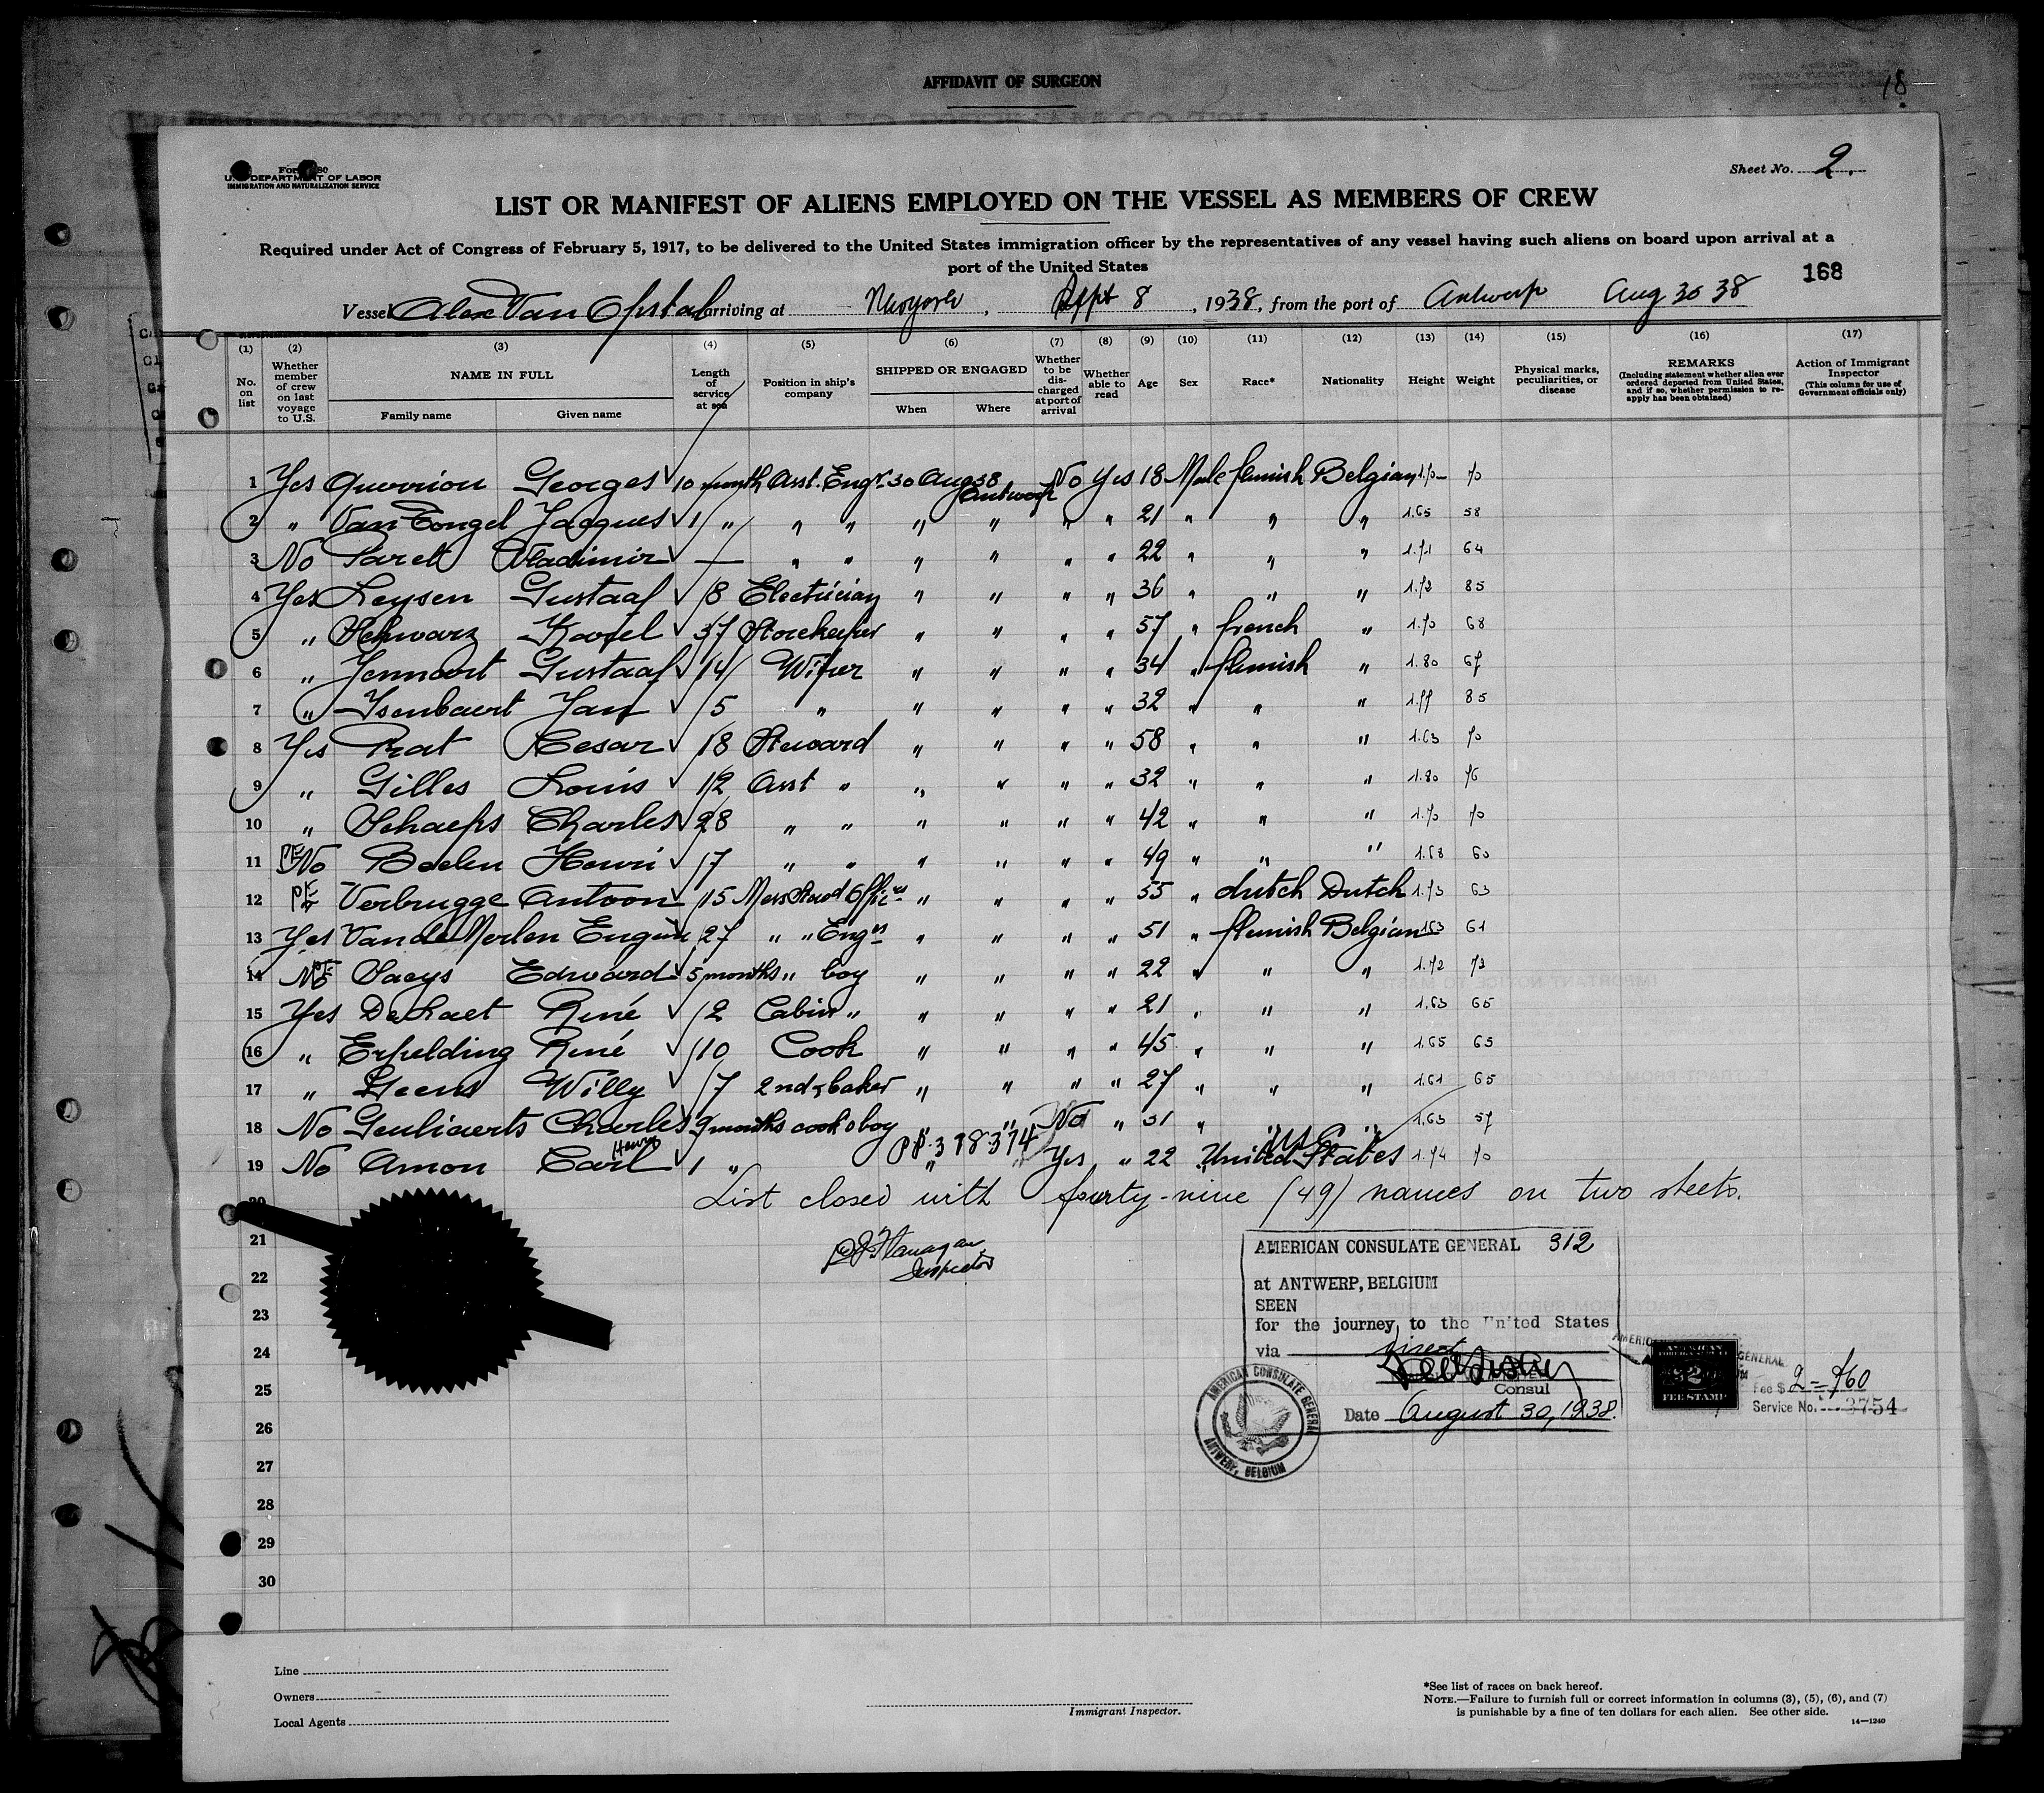 AFFIDAVIT OF SURGEON
18
U.S. DEPARTMENT OF LABOR
IMMIGRATION AND NATURALIZATION SERVICE
Sheet No. 2.
LIST OR MANIFEST OF ALIENS EMPLOYED ON THE VESSEL AS MEMBERS OF CREW
Required under Act of Congress of February 5, 1917, to be delivered to the United States immigration officer by the representatives of any vessel having such aliens on board upon arrival at a
port of the United States
168
Vessel Alex Van Opstal arriving at Newyork, Sept 8, 1938, from the port of Antwerp Aug 30 38
(1) (2) (3) (4) (5) (6) (7) (8) (9) (10) (11) (12) (13) (14) (15) (16) (17)
No. on list
Whether member of crew on last voyage to U.S.
NAME IN FULL
Family name Given name
Length of service at sea
Position in ship's company
SHIPPED OR ENGAGED
When Where
Whether to be discharged at port of arrival
Whether able to read
Age
Sex
Race*
Nationality
Height
Weight
Physical marks, peculiarities, or disease
REMARKS
(Including statement whether alien ever ordered deported from United States, and if so, whether permission to reapply has been obtained)
Action of Immigrant Inspector
(This column for use of Government officials only)
1 Yes Querriou Georges 10 month Asst. Engr. 30 Aug 38 Antwerp No Yes 18 Male flemish Belgian 1.70 70
2 " Van Tongel Jacques 1 " " " " " " " 21 " " " 1.65 58
3 No Paret Vladimir — " " " " " " 22 " " " 1.71 64
4 Yes Leysen Gustaaf 8 Electrician " " " " 36 " " " 1.73 85
5 " Schwarz Karel 37 Storekeeper " " " " 57 " french " 1.70 68
6 " Jennart Gustaaf 14 Wiper " " " " 34 " flemish " 1.80 67
7 " Isenbaert Jan 5 " " " " " 32 " " " 1.77 85
8 Yes Prat Cesar 18 Steward " " " " 58 " " " 1.63 70
9 " Gilles Louis 12 Asst " " " " " 32 " " " 1.80 76
10 " Schaeps Charles 28 " " " " " " 42 " " " 1.70 70
11 No Baelen Henri 17 " " " " " " 49 " " " 1.68 60
12 " Verbrugge Antoon 15 Mess Stewd Offic. " " " " 55 " dutch Dutch 1.73 63
13 Yes Van de Merlen Eugène 27 " " Engrs " " " " 51 " flemish Belgian 1.63 61
14 No Saeys Edward 5 months " boy " " " " 22 " " " 1.72 73
15 Yes De Laet René 2 Cabin " " " " " 21 " " " 1.63 65
16 " Erpelding René 10 Cook " " " " 45 " " " 1.65 65
17 " Geens Willy 7 2nd baker " " " " 27 " " " 1.61 65
18 No Geuliaerts Charles 9 months cook's boy " " No " 31 " " " 1.63 57
PP. 378374 USC
19 No Amon Carl Henry 1 " " " Yes " 22 " United States 1.74 70
20
List closed with fourty-nine (49) names on two sheets.
21
Flanagan
Inspector
22
23
24
25
26
27
28
29
30
AMERICAN CONSULATE GENERAL 312
at ANTWERP, BELGIUM
SEEN
for the journey to the United States
via direct
Consul
Date August 30, 1938.
AMERICAN CONSULATE GENERAL
ANTWERP, BELGIUM
AMERICAN
$2
FEE STAMP
Fee $ 2 = f60
Service No. 3754
Line
Owners
Local Agents
Immigrant Inspector.
*See list of races on back hereof.
NOTE.—Failure to furnish full or correct information in columns (3), (5), (6), and (7)
is punishable by a fine of ten dollars for each alien. See other side.
14—1240